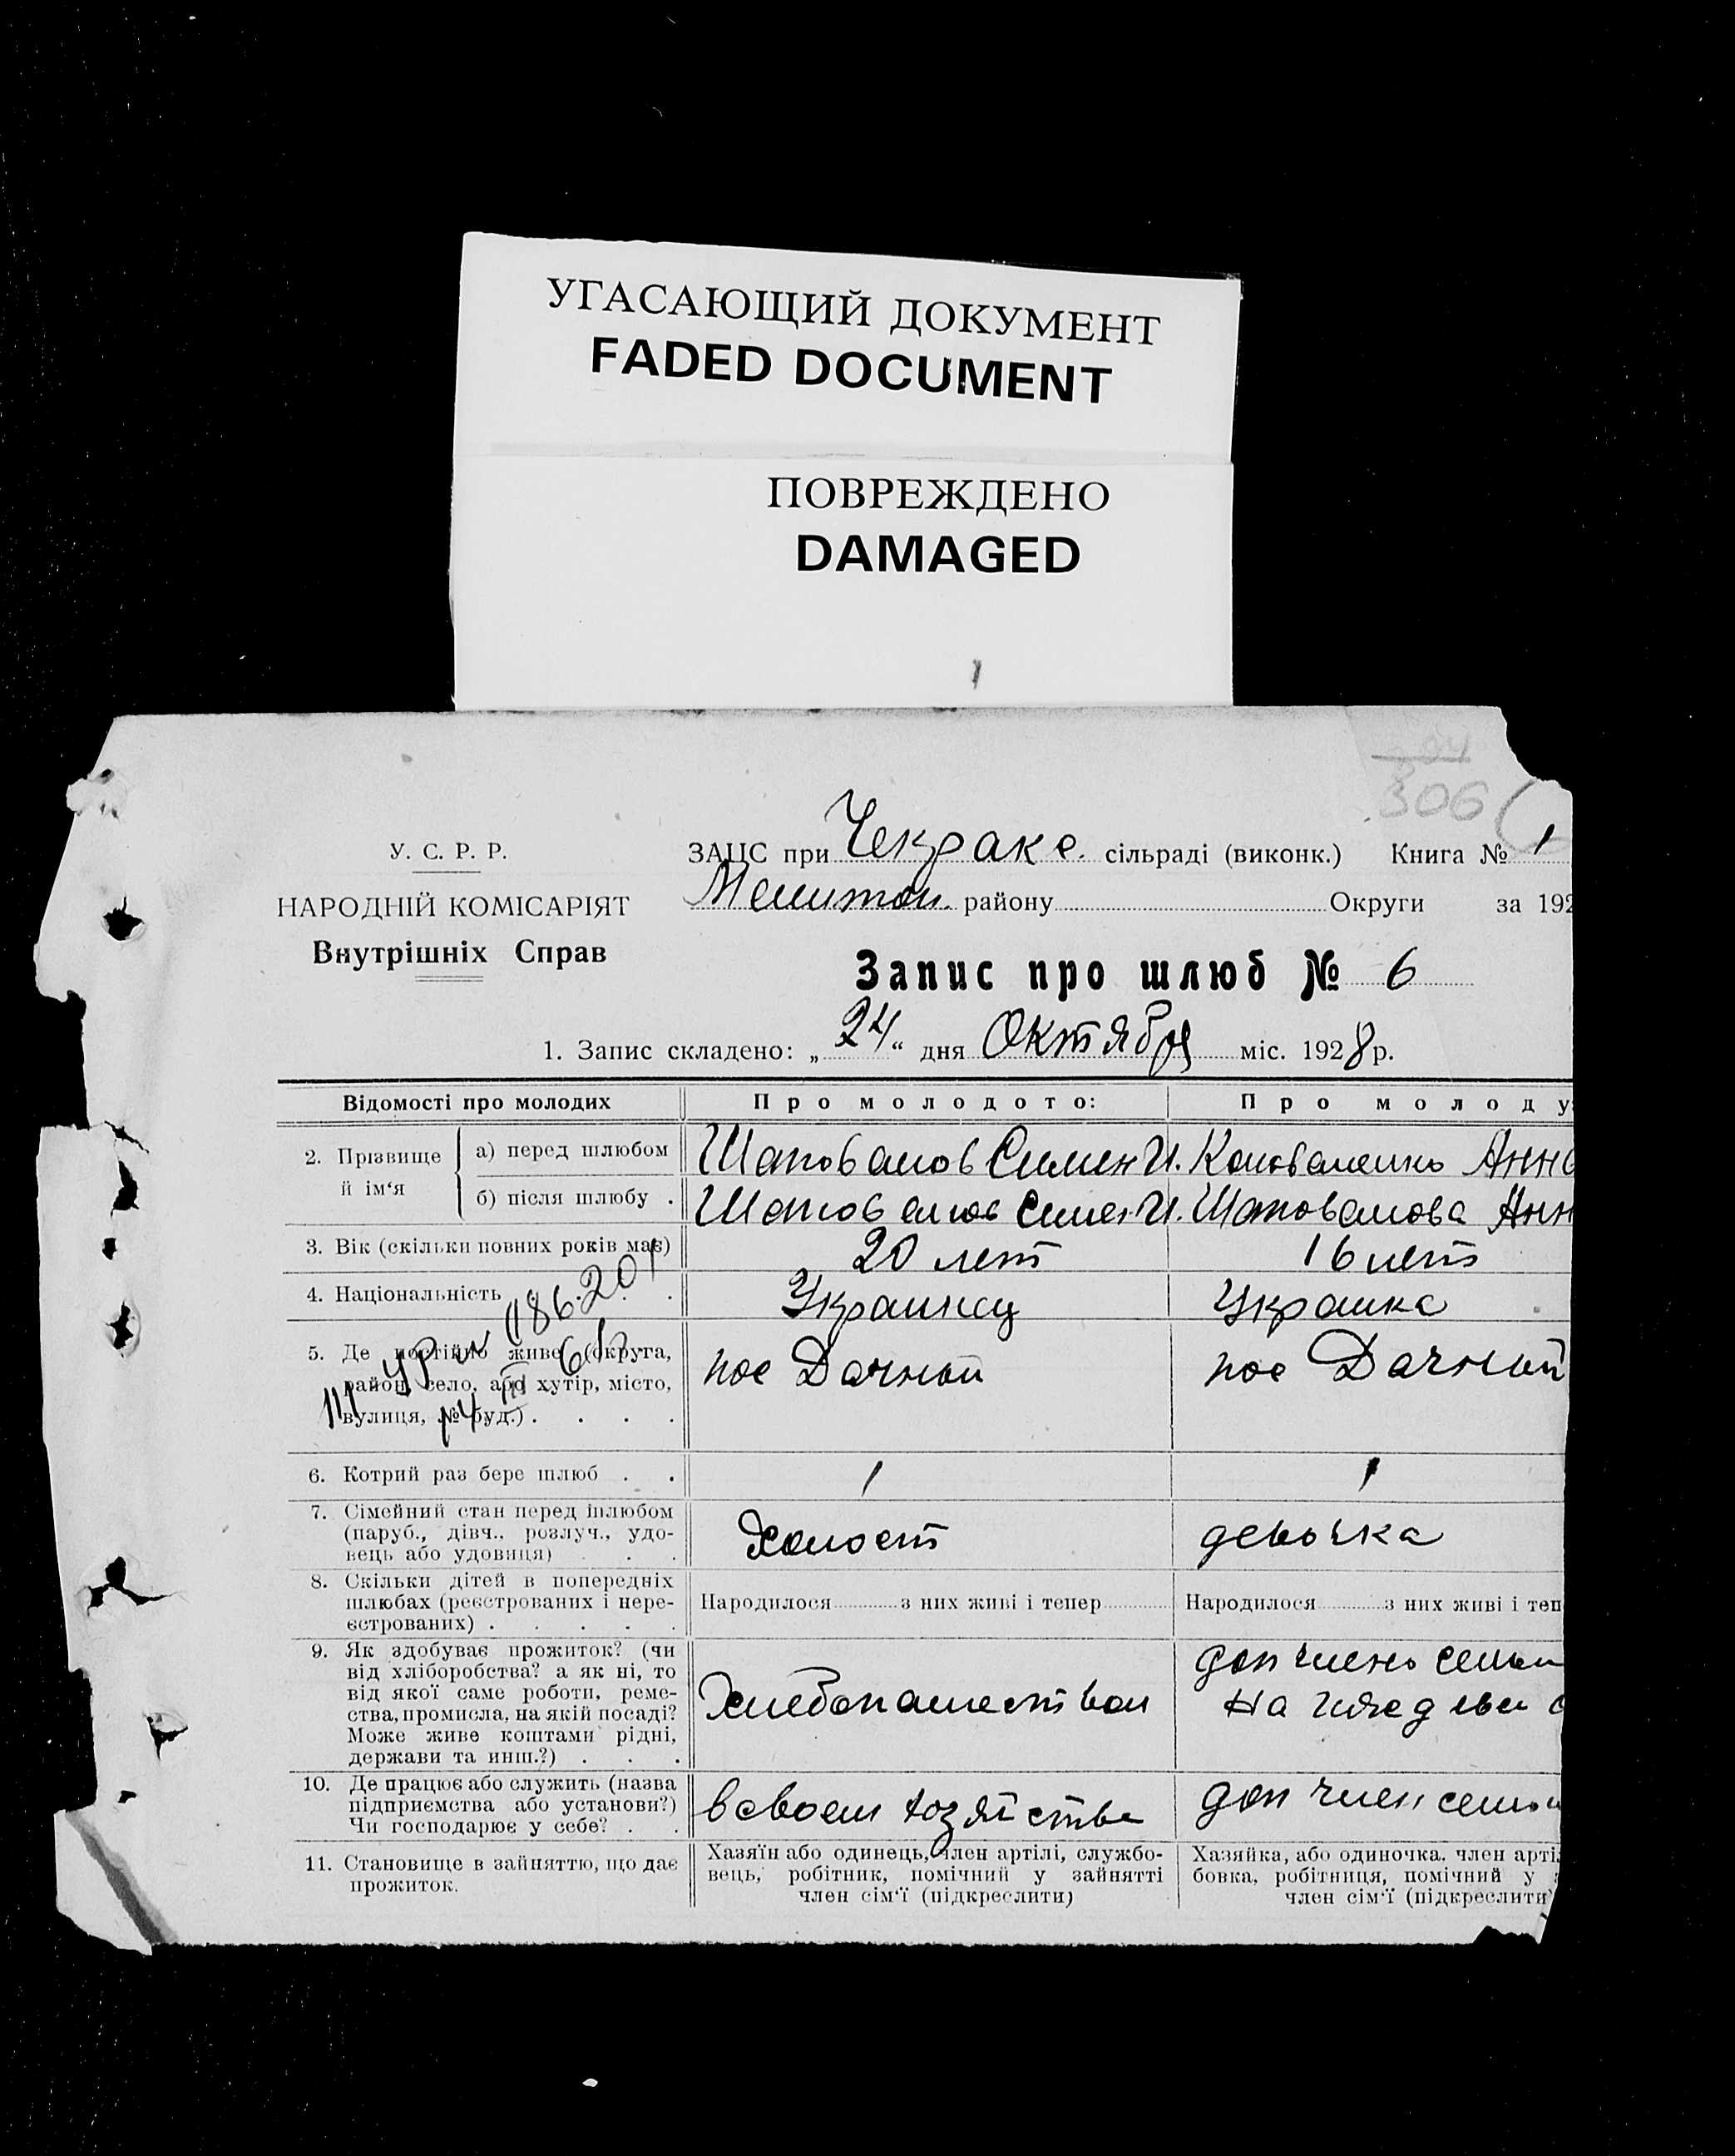 УГАСАЮЩИЙ ДОКУМЕНТ
FADED DOCUMENT
ПОВРЕЖДЕНО
DAMAGED
306
У. С. Р. Р.
НАРОДНІЙ КОМІСАРІЯТ
Внутрішніх Справ
ЗАЦС при Чекрак с. сільраді (виконк.) Книга № 1
району Округи за 192
Запис про шлюб № 6
1. Запис складено: „ 24 “ дня Октября міс. 1928 р.
Відомості про молодих Про молодого: Про молоду
2. Прізвище й ім‘я
а) перед шлюбом Шаповалов Симен И. Коноваленко Анна
б) після шлюбу . Шаповалов Симен И. Шаповалова Анн
3. Вік (скільки повних років має) 20 лет 16 лет
4. Національність . . . . Украинец Украинка
5. Де постійно живе (округа,
район, село, або хутір, місто,
вулиця, № буд.) . . . . пос Дачный пос Дачный
6. Котрий раз бере шлюб . . 1 1
7. Сімейний стан перед шлюбом
(паруб., дівч., розлуч., удо-
вець або удовиця) . . . Холост девочка
8. Скільки дітей в попередніх
шлюбах (реєстрованих і нере-
єстрованих) . . . . . Народилося з них живі і тепер Народилося з них живі і теп
9. Як здобуває прожиток? (чи
від хліборобства? а як ні, то
від якої саме роботи, реме-
ства, промисла, на якій посаді?
Може живе коштами рідні,
держави та инш.?) . . . Хлебопашеством доп член семьи
на
10. Де працює або служить (назва
підприємства або установи?)
Чи господарює у себе? . . в своем хозяйстве доп член семьи
11. Становище в зайняттю, що дає
прожиток.
Хазяїн або одинець, член артілі, службо-
вець, робітник, помічний у зайнятті
член сім‘ї (підкреслити)
Хазяйка, або одиночка, член арті
бовка, робітниця, помічний у
член сім‘ї (підкреслити